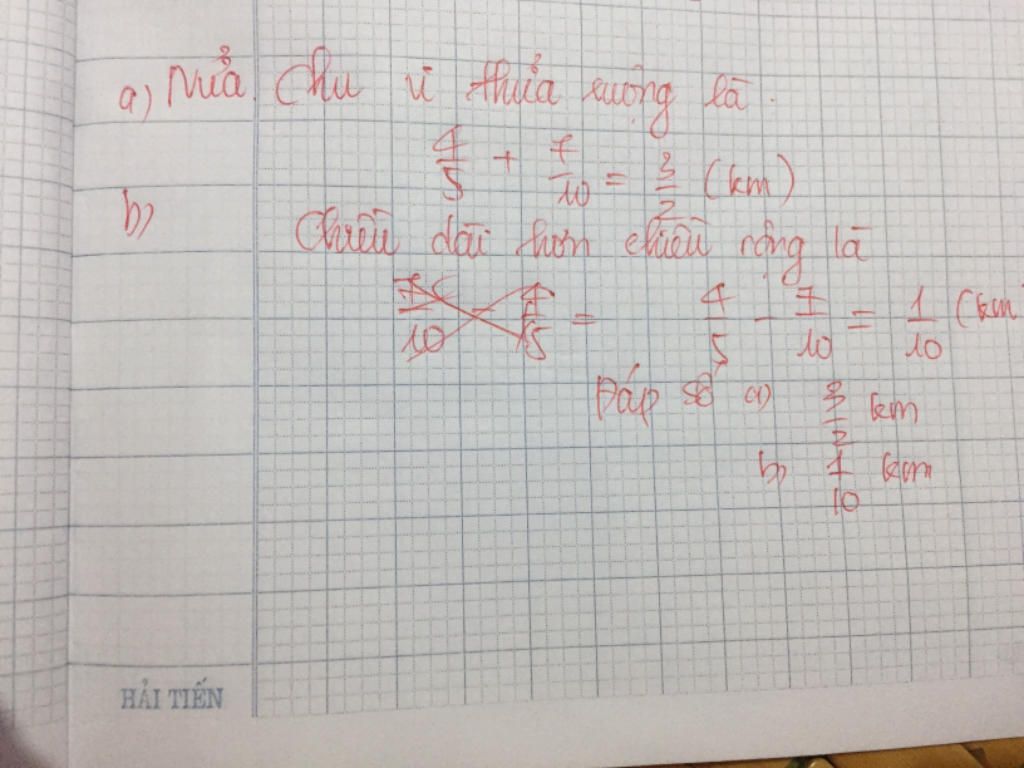 a) Nửa Chu vi thửa ruộng là.
4/5 + 7/10 = 3/2 (km)
b)
Chiều dài hơn chiều rộng là
7/10 4/5 = 4/5 - 7/10 = 1/10 (km
Đáp số a) 3/2 km
b) 1/10 km
HẢI TIẾN